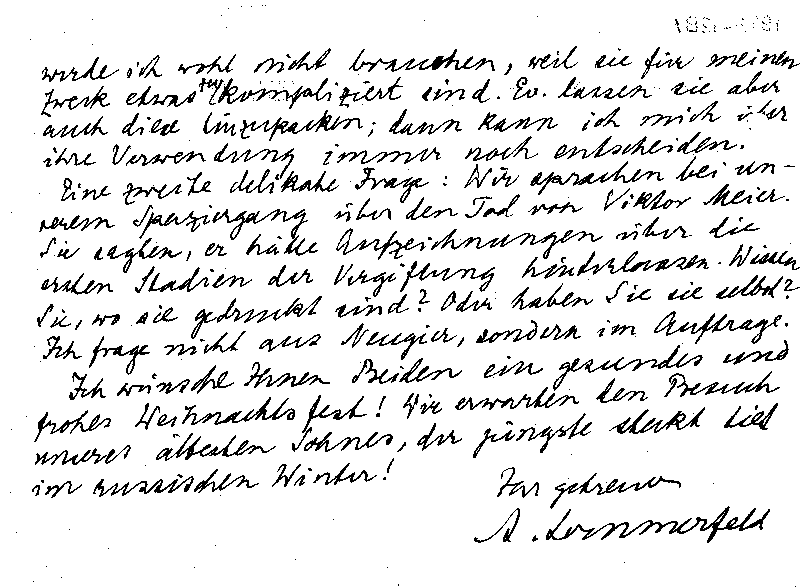 werde ich wohl nicht brauchen, weil sie für meinen
Zweck etwas zu kompliziert sind. Ev. lassen sie aber
auch diese hinzupacken; dann kann ich mich über
ihre Verwendung immer noch entscheiden.
Eine zweite delikate Frage: Wir sprachen bei un-
serem Spaziergang über den Tod von Viktor Meier.
Sie sagten, er hätte Aufzeichnungen über die
ersten Stadien der Vergiftung hinterlassen. Wissen
Sie, wo sie gedruckt sind? Oder haben Sie sie selbst?
Ich frage nicht aus Neugier, sondern im Auftrage.
Ich wünsche Ihnen Beiden ein gesundes und
frohes Weihnachtsfest! Wir erwarten den Besuch
unseres ältesten Sohnes, der jüngste steckt tief
im russischen Winter!
Ihr getreuer
A. Sommerfeld